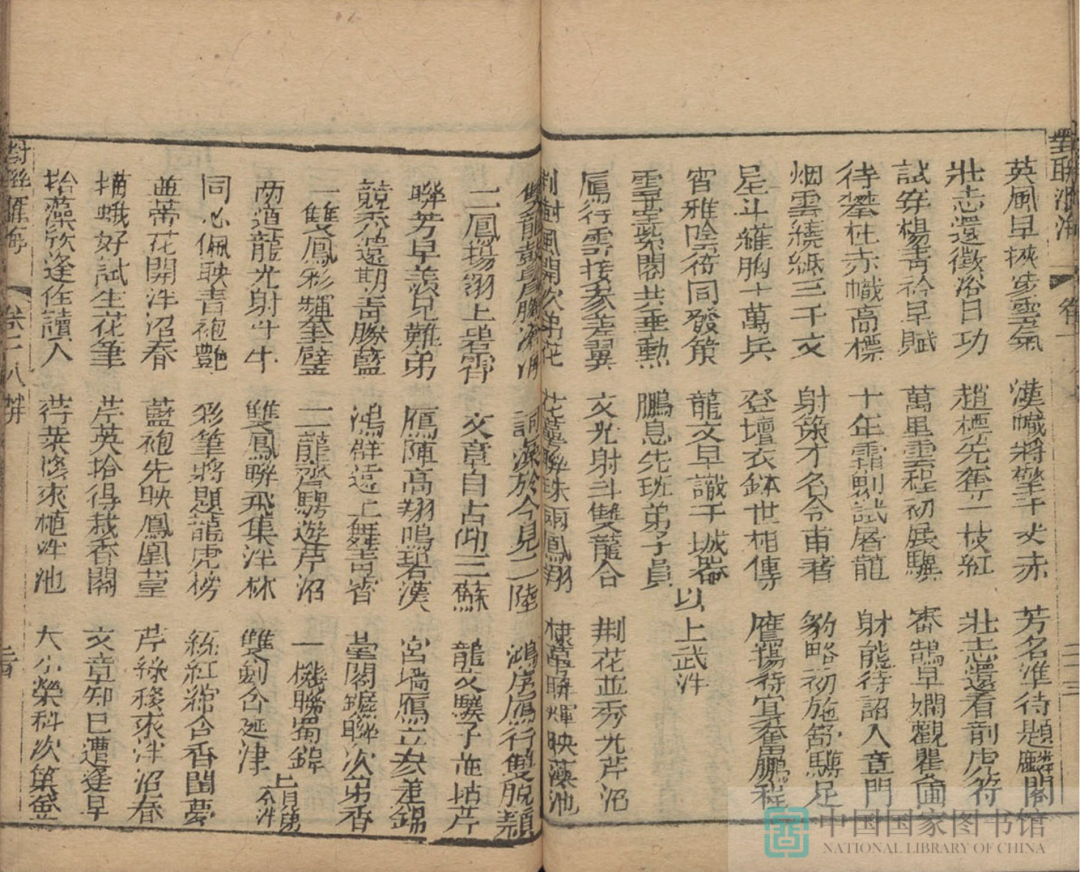 英風早挾步雲氣 漢幟將擎千丈赤 芳名准待題麟閣
壯志還徵浴日功 趙標先奪一枝紅 壯志還看剖虎符
試穿楊青衿早賦 萬里雲程初展驥 審鵠早嫻觀瞿圃
待攀桂赤幟高標 十年霜劍試屠龍 財能待詔入章門
烟雲繞紙三千文 射策才名令甫著 豹略初施舒驥足
星斗羅胸十萬兵 登壇衣鉢世相傳 鷹揚待宜奮鵬程
宵雅吟詩同發策 龍文早識干城器
雲臺閣共垂勲 鵬息先班弟子員 以上武泮
鴈行雲接參差翼 文光射斗雙龍合 荆花並秀光芹沼
荆樹風開次弟花 花萼聯珠兩鳳翔 棣萼聯輝映藻池
雙龍 詞藻於今見二陸 鴻序鴈行雙脫穎
二鳳揚翎上碧霄 文章自占三蘇 龍文驥子並拈芹
聯芳早羨兄難弟 鴈陣高翔鳴碧漢 宮墻鴈立參差錦
競秀遠期青勝藍 鴻群遠上舞 臺閣聯次弟香
一雙鳳彩輝奎璧 二龍齊騁遊芹沼 一機聯蜀錦
兩道龍光射斗牛 雙鳳聯飛集泮林 雙劍合延津 上兄弟仝泮
同心佩映青袍艷 彩筆將題龍虎榜 紅綰合香閨夢
並蒂花開泮沼春 藍袍先映鳳凰臺 芹綠移來泮沼春
描蛾好試生花筆 芹英拾得栽香閣 文章知已遭逢早
掞藻欣逢佳讀人 荇菜移來植泮池 大小榮科次第登
對聯匯海 卷二 八 二十三
對聯匯海 卷二 八 二十四
中国国家图书馆
NATIONAL LIBRARY OF CHINA